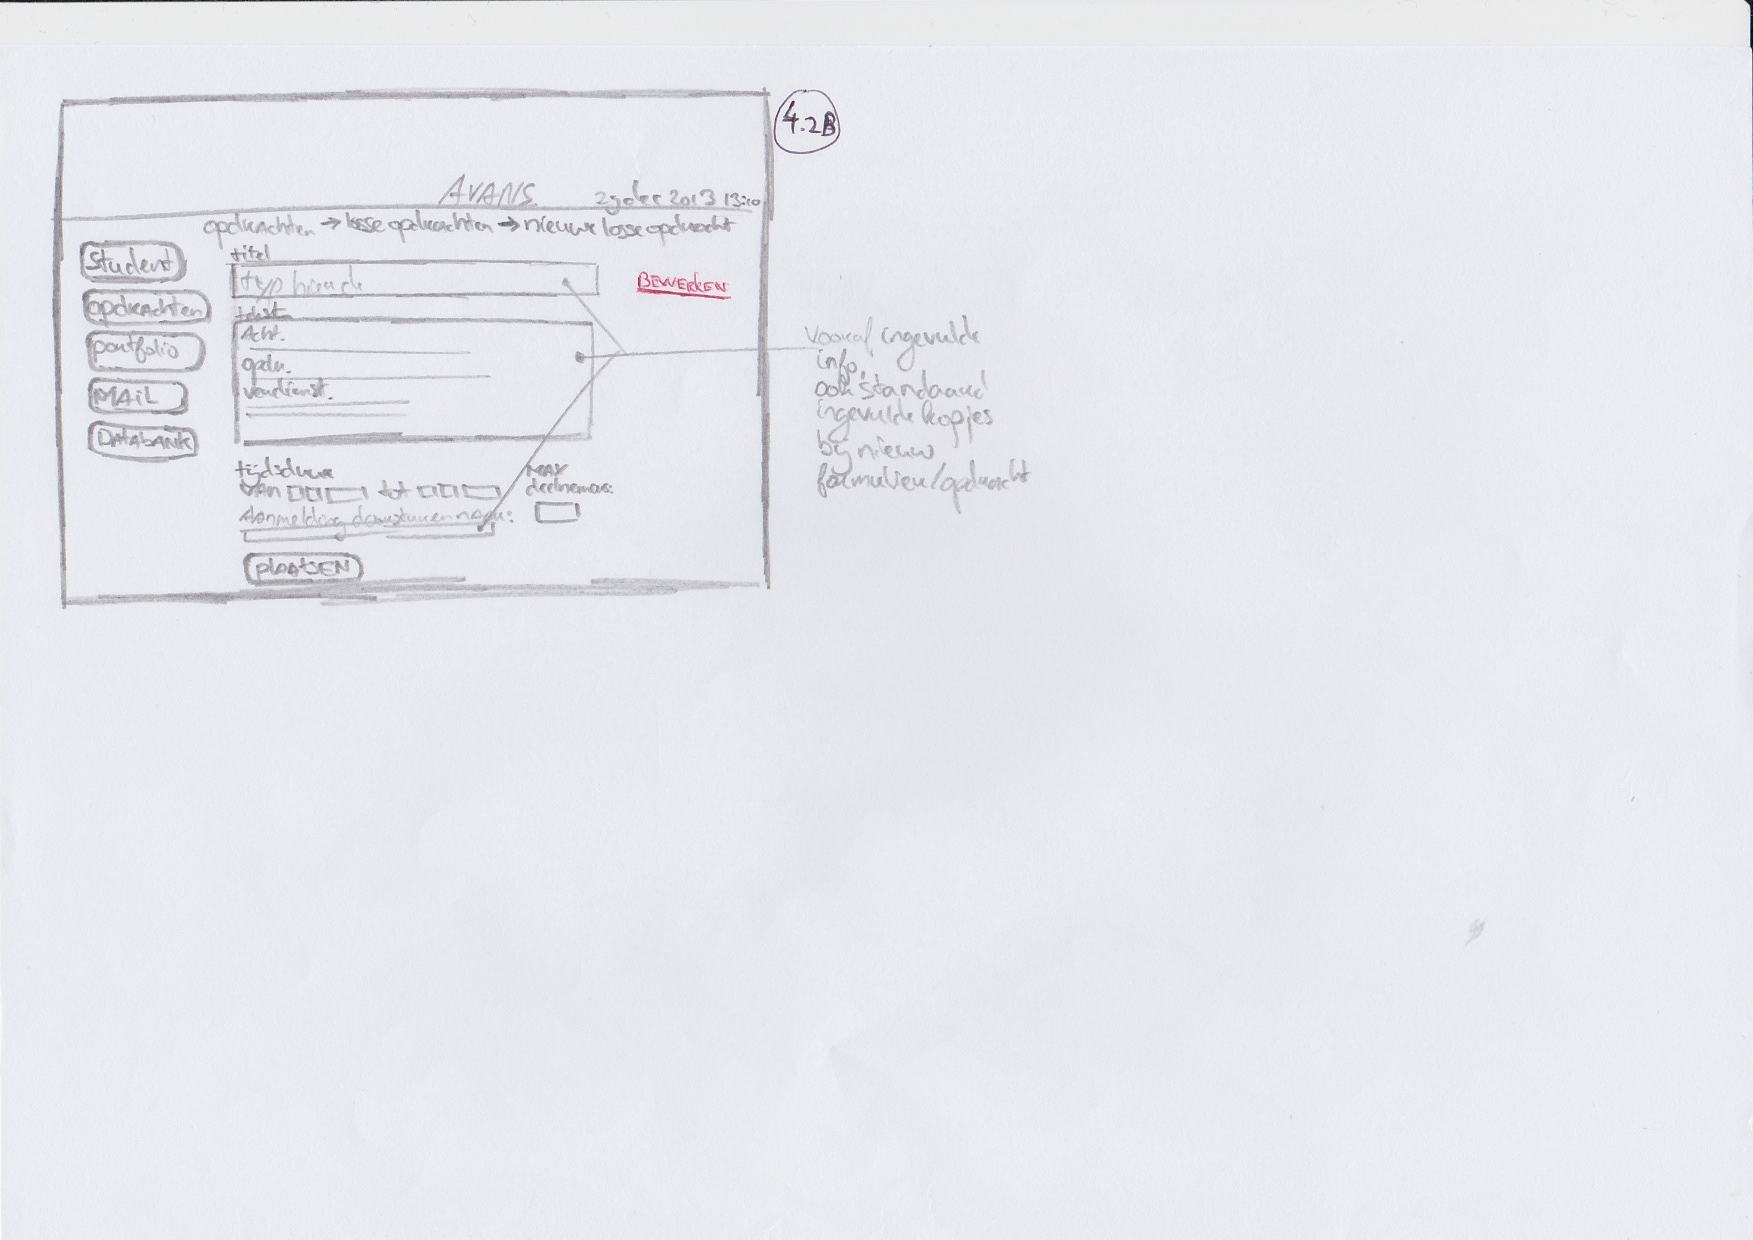 4.2B
AVANS. 29 dec 2013 13:10
opdrachten → losse opdrachten → nieuwe losse opdracht
student
opdrachten
portfolio
MAIL
DATABANK
titel
typ hier
BEWERKEN
tekst
Acht.
opdr.
verdienst.
tijdsduur
VAN tot
MAX
deelnemers:
Aanmelding doorsturen naar:
plaatsen
Vooraf ingevulde
info,
ook standaard
ingevulde kopjes
bij nieuw
formulier/opdracht